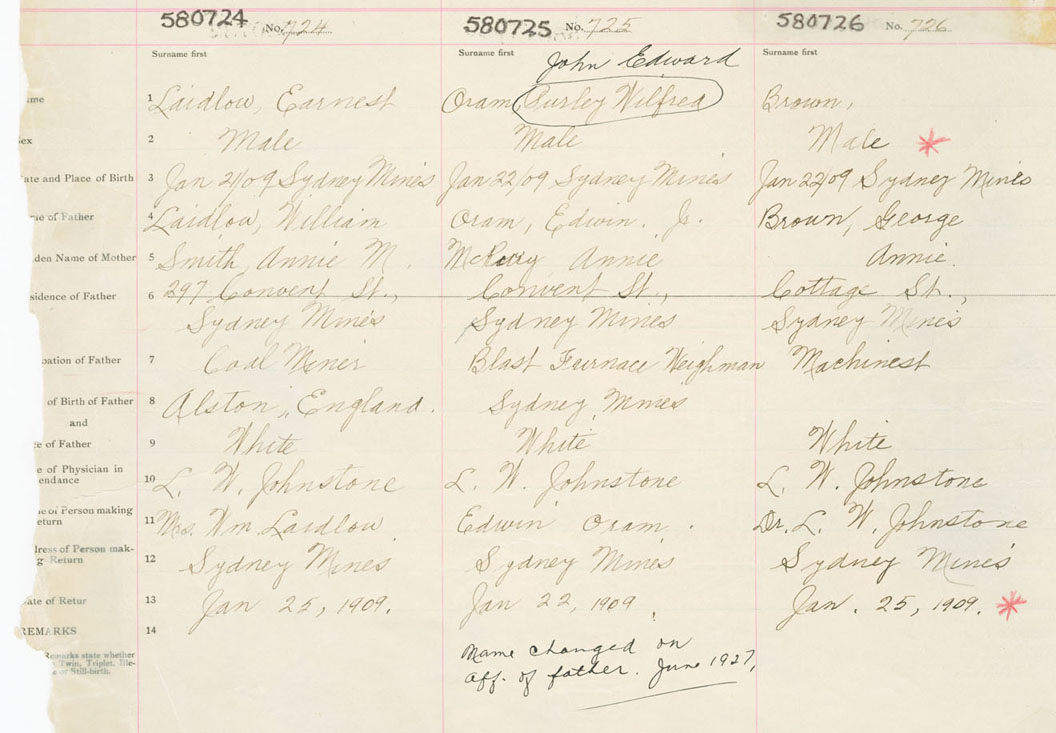 580724 No. 724 580725 No. 725 580726 No. 726
Surname first Surname first Surname first
John Edward
ame 1 Laidlow, Earnest Oram, Burley Wilfred Brown,
ex 2 Male Male Male *
ate and Place of Birth 3 Jan 21/09 Sydney Mines Jan 22/09 Sydney Mines Jan 22/09 Sydney Mines
me of Father 4 Laidlow, William Oram, Edwin. Jr. Brown, George
den Name of Mother 5 Smith, Annie M. Annie Annie.
sidence of Father 6 297 Convent St., Convent St., Cottage St.,
Sydney Mines Sydney Mines Sydney Mines
pation of Father 7 Coal Miner Blast Fuurnace Weighman Machinest
of Birth of Father 8 Alston, England. Sydney Mines
and
e of Father 9 White White White
e of Physician in
endance 10 L. W. Johnstone L. W. Johnstone L. W. Johnstone
e of Person making
eturn 11 Mrs. Wm. Laidlow Edwin Oram. Dr. L. W. Johnstone
dress of Person mak-
g Return 12 Sydney Mines Sydney Mines Sydney Mines
ate of Retur 13 Jan 25, 1909. Jan 22, 1909 Jan. 25, 1909. *
REMARKS 14
Remarks state whether
Twin, Triplet, Ille-
e or Still-birth.
Name changed on
aff. of father. June 1927,